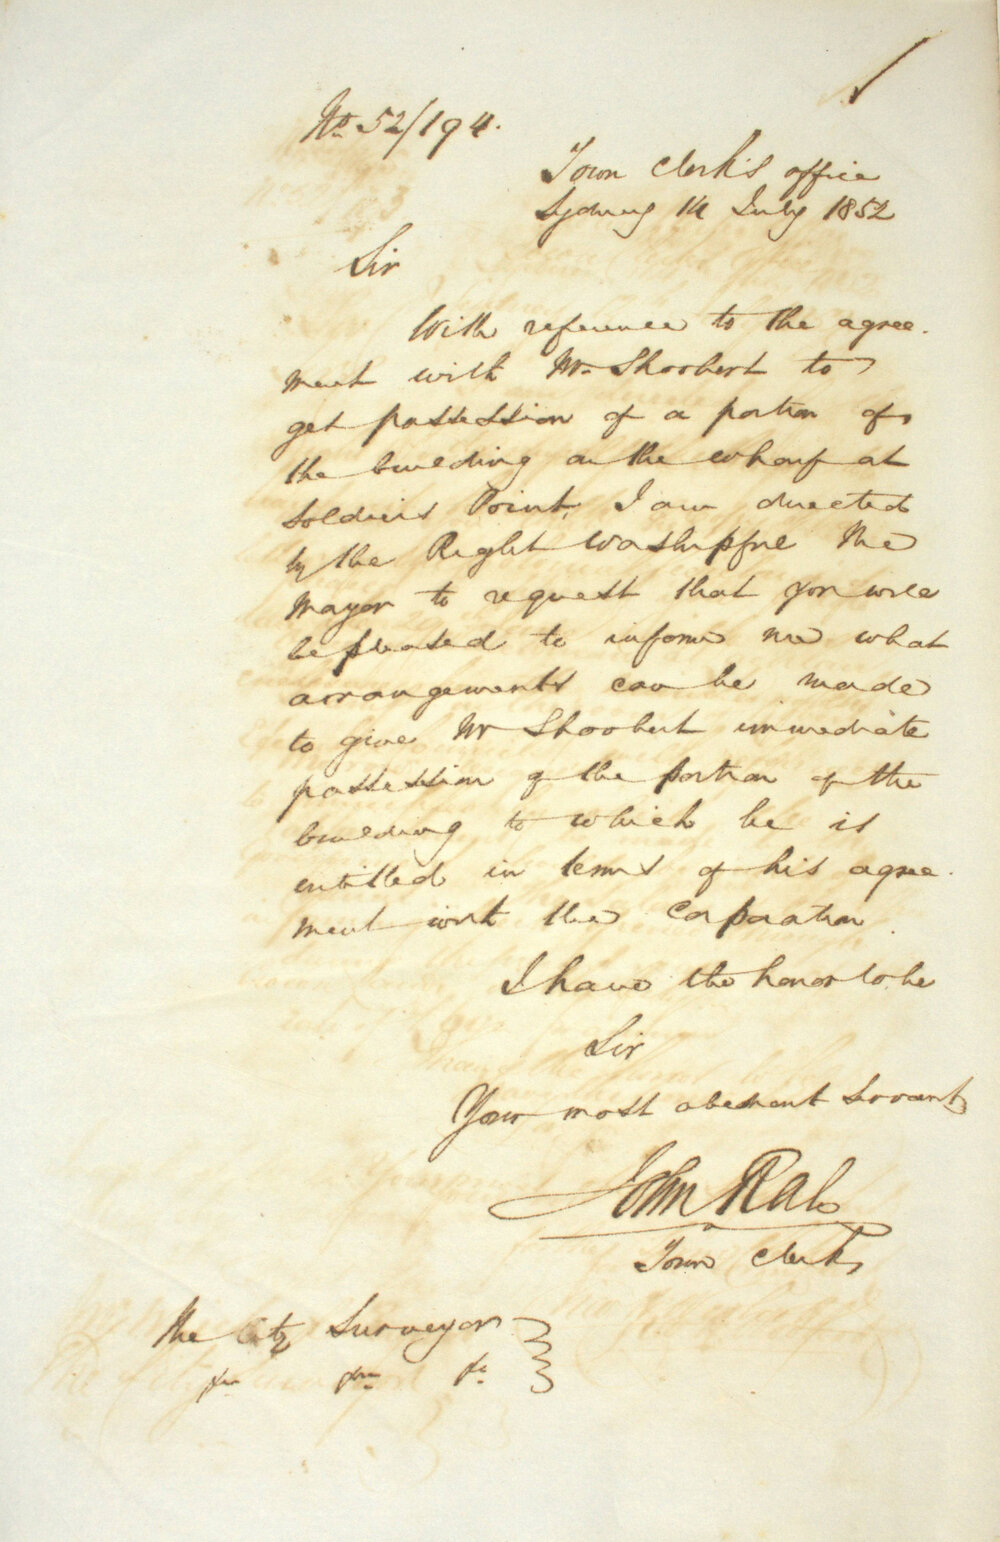 No. 52/194.
Town Clerk's office
Sydney 14 July 1852
Sir
With reference to the agree.
ment with Mr. Shoobert to
get possession of a portion of
the building on the wharf at
Soldiers Point, I am directed
by the Right Worshipful The
Mayor to request that you will
be pleased to inform me what
arrangements can be made
to give Mr Shoobert immediate
possession of the portion of the
building to which he is
entitled in terms of his agree.
ment with the Corporation.
I have the honor to be
Sir
Your most obedient Servant
John Rae
Town Clerk
The City Surveyor
&c &c &c